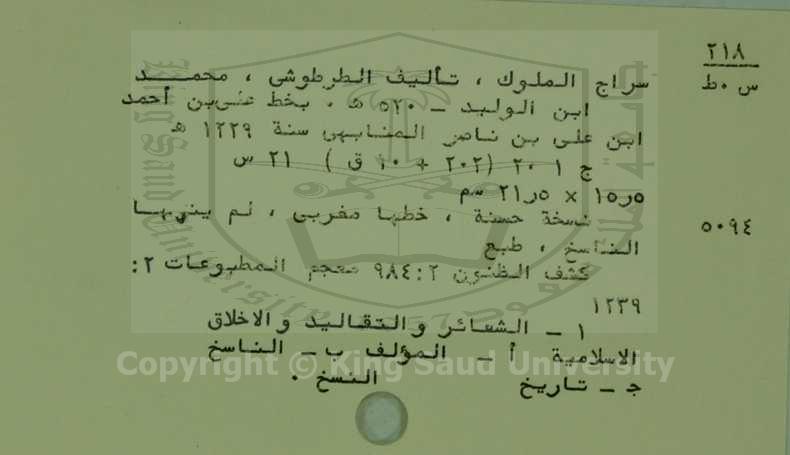 ٢١٨
س ٠ط
سراج الملوك ، تأليف الطرطوشى ، محمــد
ابن الوليد ــ ٥٢٠ هـ ٠ بخط على بن أحمد
ابن على بن ناصر سنة ١٢٢٩ هـ
ج ١ ٠ ٢ (٢٠٢ + ١٠ ق ) ٢١ س
٥ر١٥ × ٥ر٢١ سم
٥٠٩٤
نسخة حسنة ، خطها مغربى ، لم ينهها
الناسخ ، طبع
كشف الظنون ٢ : ٩٨٤ معجم المطبوعات ٢ :
١٢٣٩
١ ــ الشعائر والتقاليد والاخلاق
الاسلامية أ ــ المؤلف ب ــ الناسخ
جـ ــ تاريخ النسخ ٠
Copyright © King Saud University